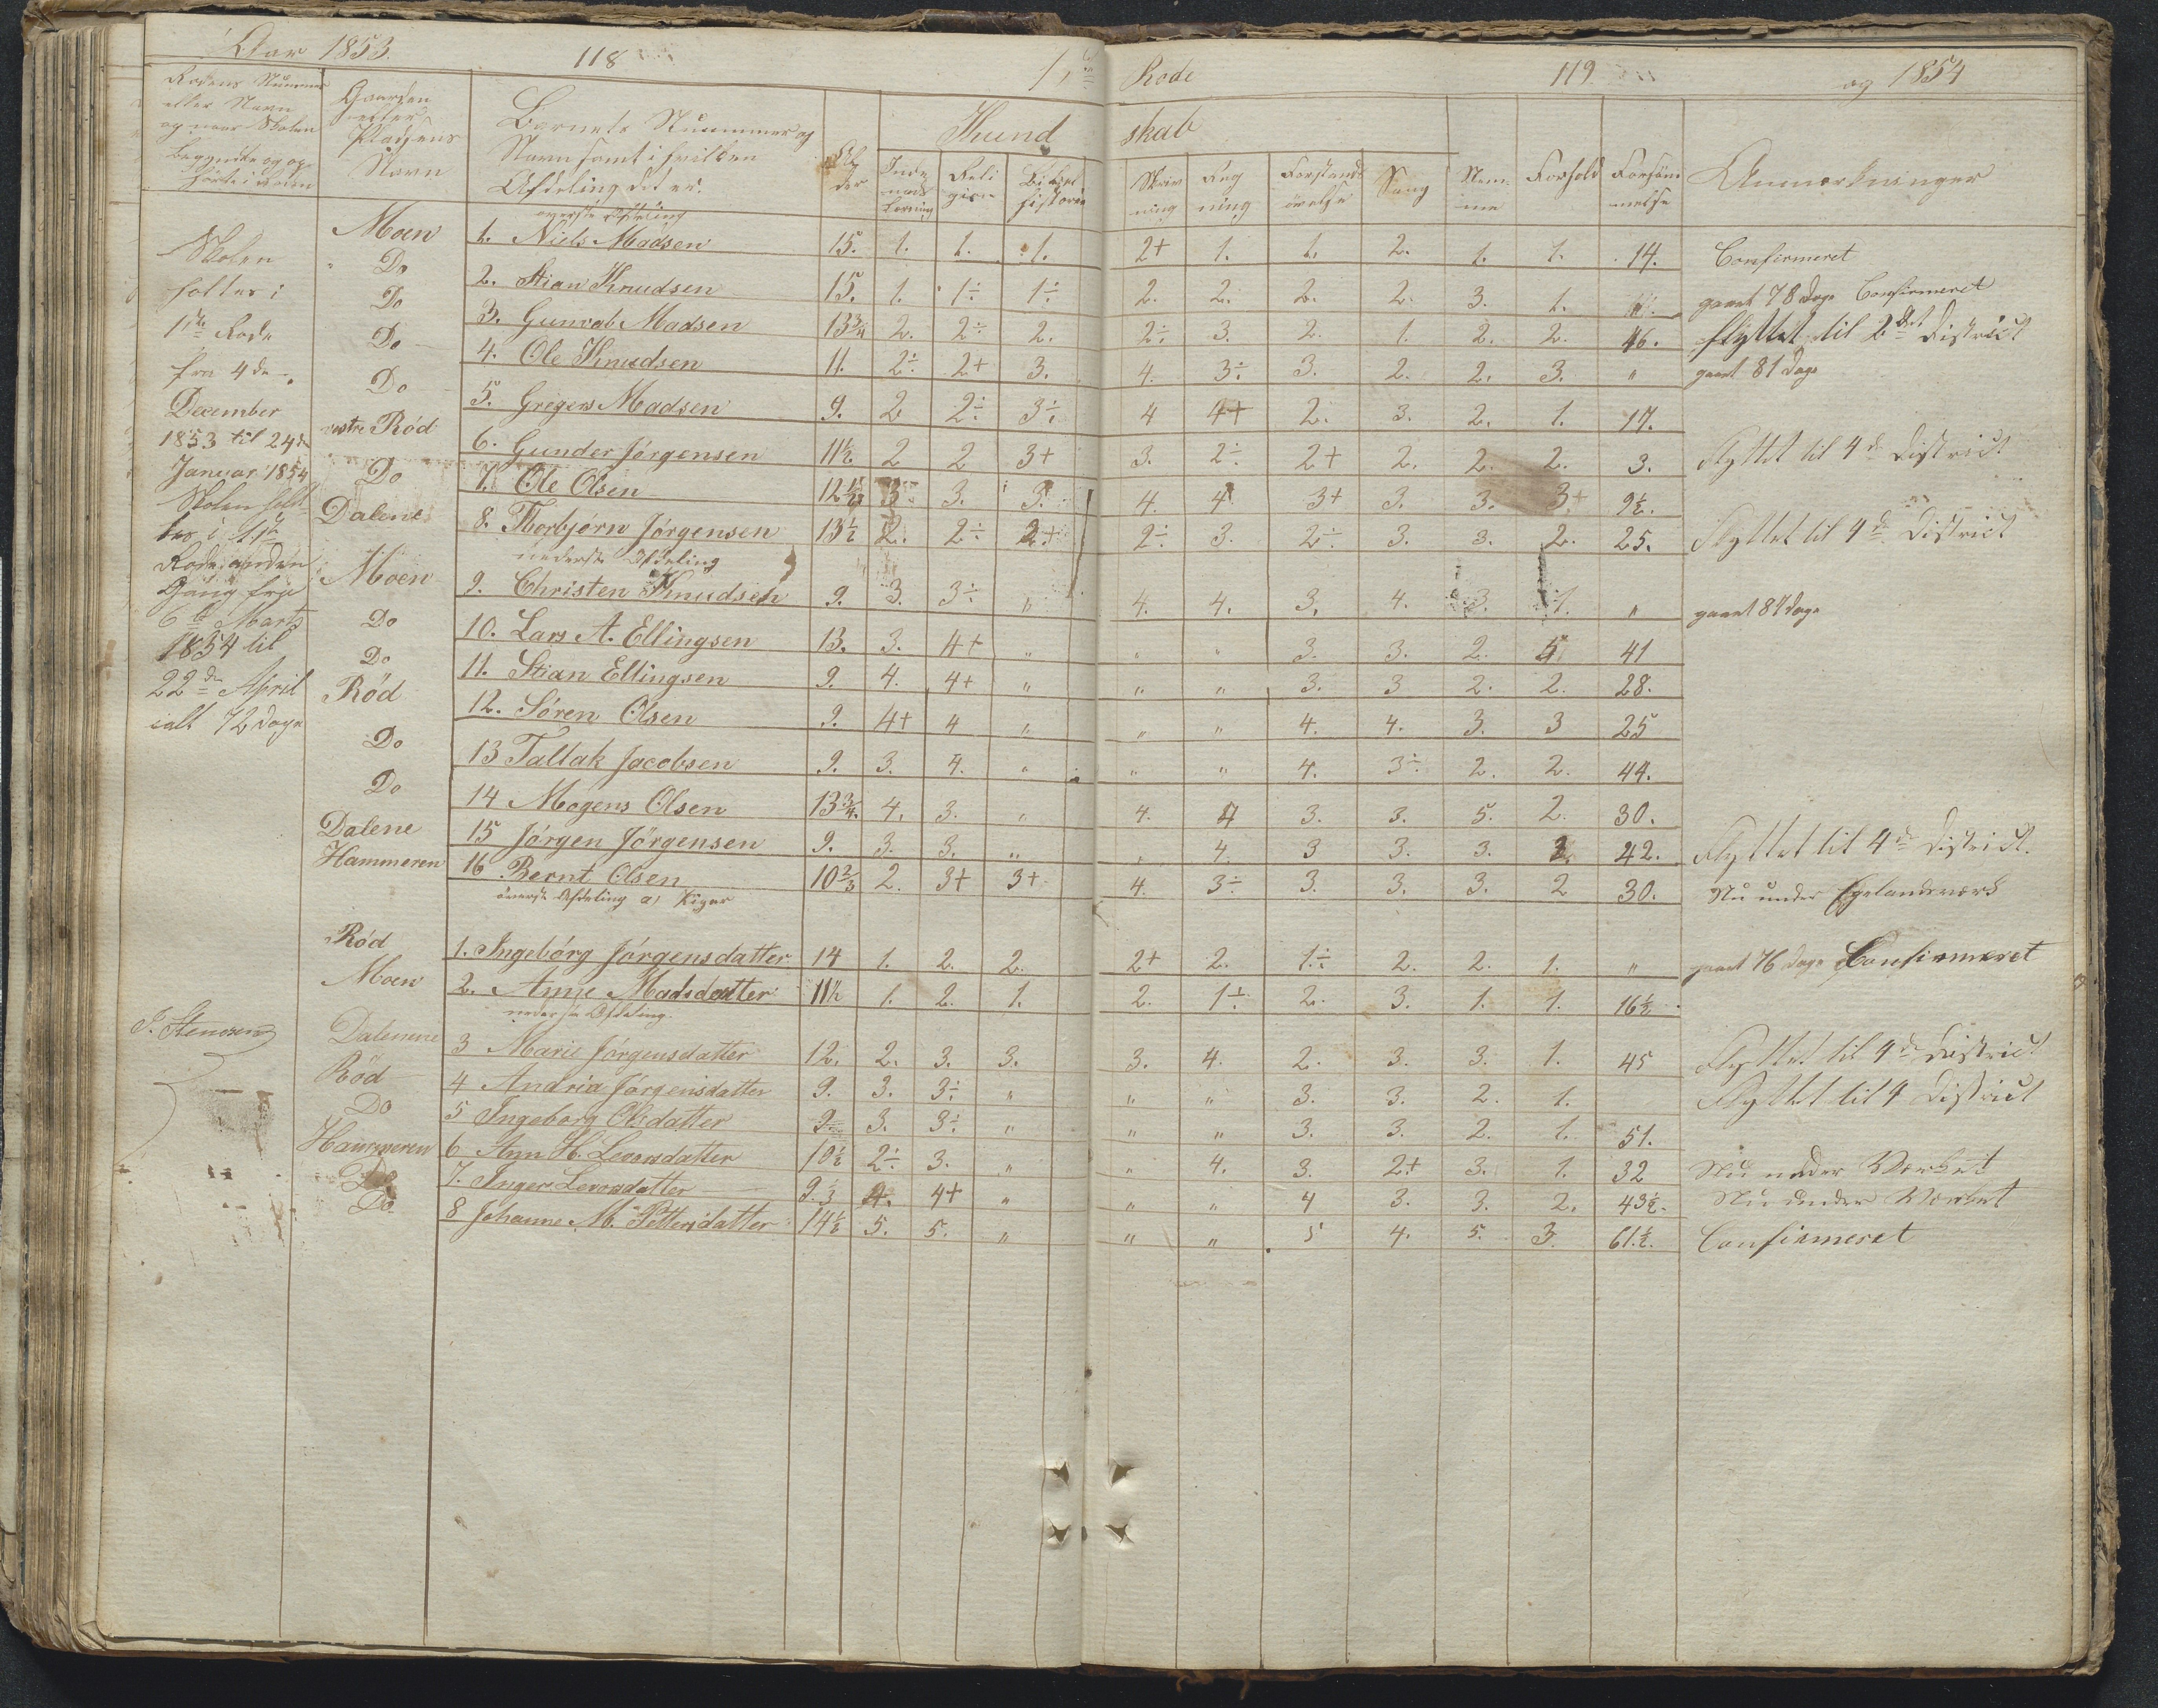 Aar 1853. 118 1ste Rode 119 og 1854
Rodens Nummer eller Navn og naar Skolen begyndte og ophørte i roden
Gaarden eller Pladsens Navn
Barnets Nummer og Navn samt i hvilken Afdeling det er.
Alder
Kundskab
Religion
Bibelhistorie
Skrivning
Regning
Forstandsøvelse
Sang
Nemme
Forhold
Forsømmelse
Anmærkninger
Skolen
holtes i
1ste Rode
fra 4de
December
1853 til 24de
Januar 1854
Skolen holdtes i 1ste
Rode anden
Gang fra
6te Marts
1854 til
22de April
ialt 72 dage
øverste Afdeling
Moen 1. Niels Madsen 15. 1. 1. 1. 2+ 1. 1. 2. 1. 1. 14. Confirmeret
Do 2. Stian Knudsen 15. 1. 1÷ 1÷ 2. 2. 2. 2. 3. 1. " gaaet 78 dage Confirmeret
Do 3. Gunvald Madsen 13¾ 2. 2÷ 2. 2÷ 3. 2. 1. 2. 2. 46. flyttet til 2det District
Do 4. Ole Knudsen 11. 2÷ 2+ 3. 4. 3÷ 3. 2. 2. 3. " gaaet 81 dage
Do 5. Gregers Madsen 9. 2 2÷ 3÷ 4 4+ 2. 3. 2. 1. 17.
vestre Rød 6. Gunder Jørgensen 11½ 2 2 3+ 3. 2÷ 2+ 2. 2. 2. 3. Flyttet til 4de District
Do 7. Ole Olsen 12½ 3 3. 3. 4. 4 3+ 3. 3. 3+ 9½.
Dalene 8. Thorbjørn Jørgensen 13½ 2. 2÷ 2+ 2÷ 3. 2÷ 3. 3. 2. 25. Flyttet til 4de District
nederste Afdeling
Moen 9. Christen Knudsen 9. 3. 3÷ " 4. 4. 3. 4. 3. 1. " gaaet 87 dage
Do 10. Lars A. Ellingsen 13. 3. 4+ " " " 3. 3. 2. 4 41
Do 11. Stian Ellingsen 9. 4. 4+ " " " 3. 3 2. 2. 28.
Rød 12. Søren Olsen 9. 4+ 4 " " " 4. 4. 3. 3 25
Do 13 Tallak Jacobsen 9. 3. 4. " " " 4. 3÷ 2. 2. 44.
Do 14 Mogens Olsen 13¾. 4. 3. " 4. 4 3. 3. 5. 2. 30.
Dalene 15 Jørgen Jørgensen 9. 3. 3. " " 4. 3 3. 3. 2. 42. Flyttet til 4de District.
Hammeren 16 Bernt Olsen 10⅔ 2. 3+ 3+ 4. 3÷ 3. 3. 3. 2 30. Nu under Egelandsværk
øverste Afdeling a) Piger
Rød 1. Ingebørg Jørgensdatter 14 1. 2. 2. 2+ 2. 1÷ 2. 2. 1. " gaaet 76 dage Confirmeret
Moen 2. Anne Madsdatter 11½ 1. 2. 1. 2. 1÷ 2. 3. 1. 1. 16½
nederste Afdeling.
Dalenene 3 Marie Jørgensdatter 12. 2. 3. 3. 3. 4. 2. 3. 3. 1. 45 Flyttet til 4de District
Rød 4 Andrea Jørgensdatter 9. 3. 3÷ " " " 3. 3. 2. 1. Flyttet til 4 District
Do 5 Ingeborg Olsdatter 9 3. 3÷ " " " 3. 3. 2. 1. 51.
Hammeren 6 Ann H. Levorsdatter 10½ 2÷ 3. " " 4. 3. 2+ 3. 1. 32 Nu under Værket
Do 7. Inger Levorsdatter 9⅓ 4. 4+ " " " 4 3. 3. 2. 43½. Nu under Værket
Do 8 Johanne M. Pettersdatter 14½ 5. 5. " " " 5 4. 5. 3. 61½. Confirmeret